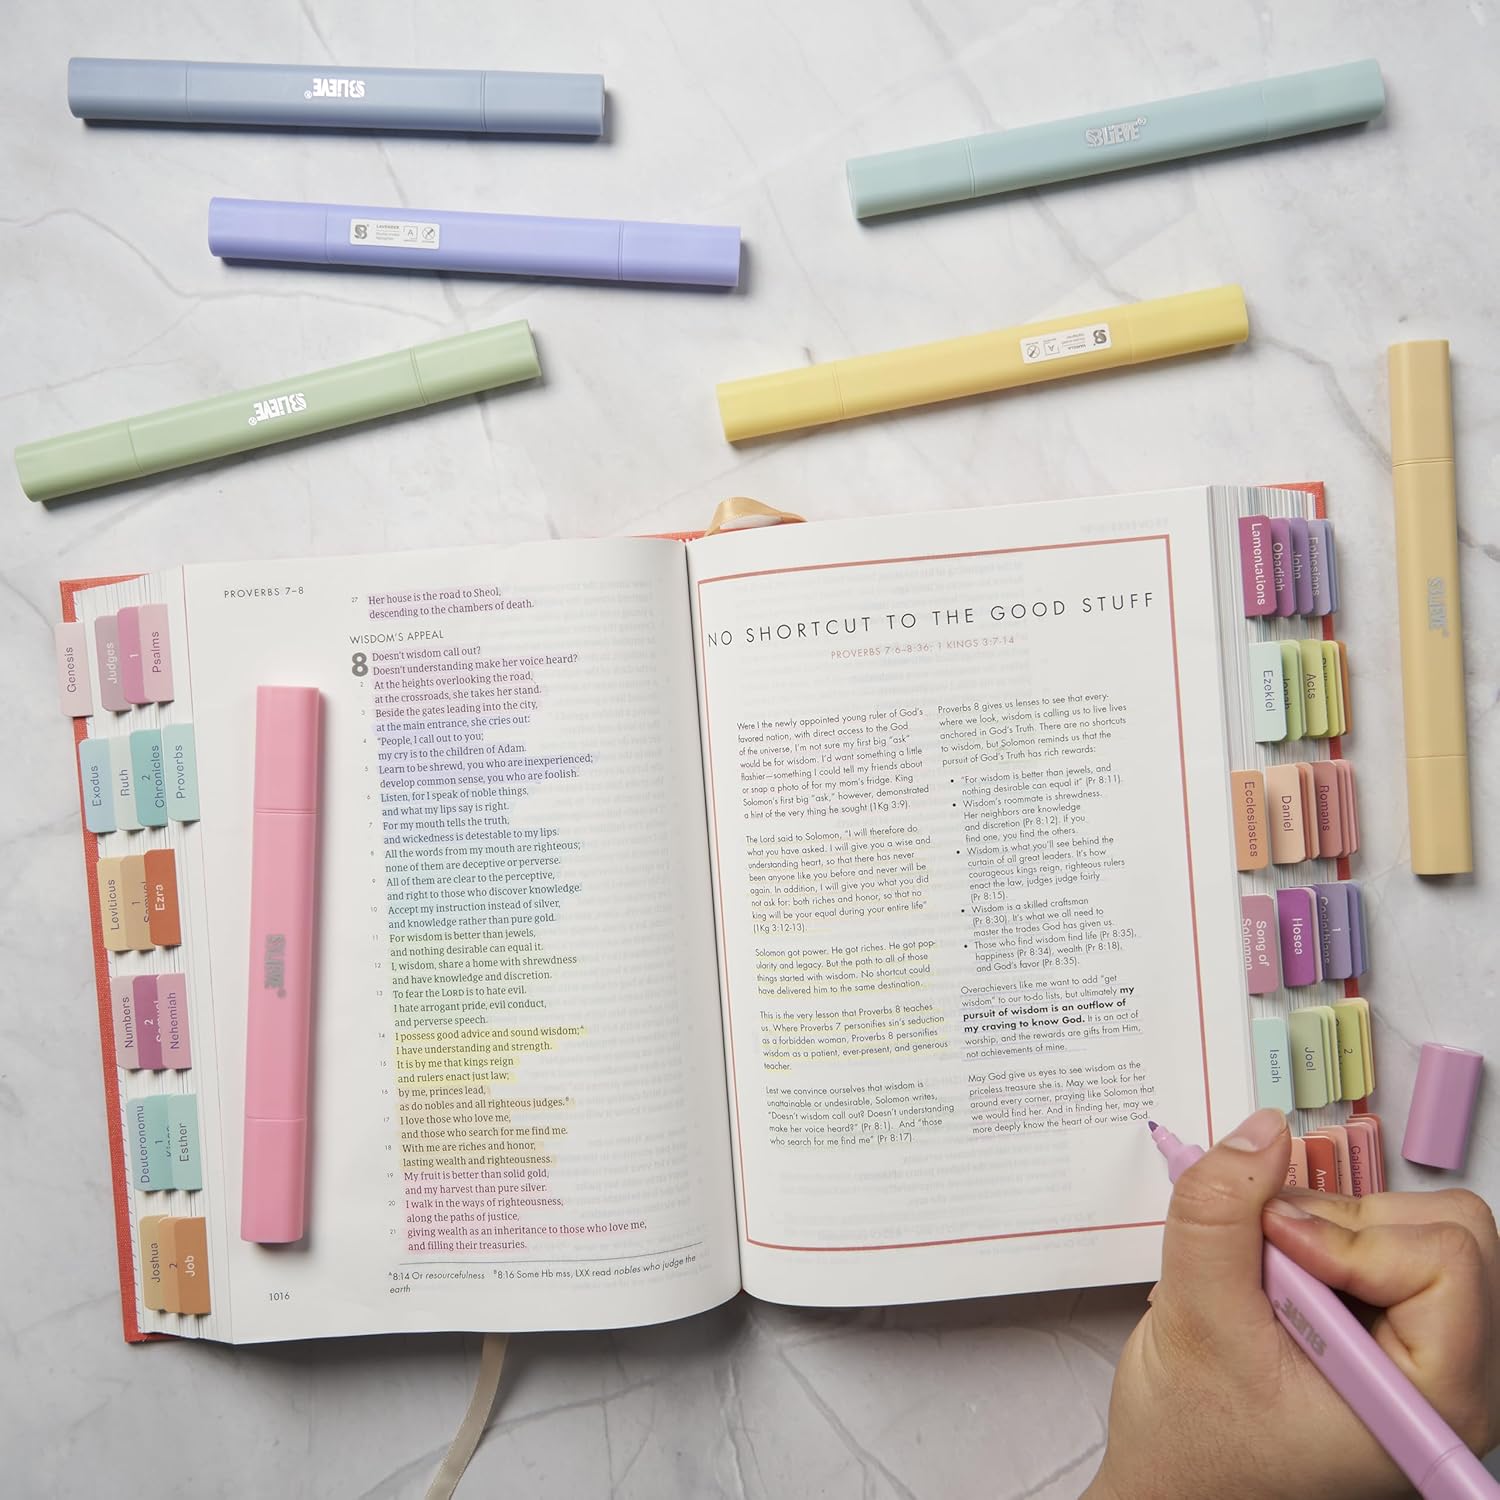 BLiEVE
BLiEVE
LAVENDER
A
BLiEVE
VANILLA
A
BLiEVE
PROVERBS 7–8
27 Her house is the road to Sheol,
descending to the chambers of death.
WISDOM'S APPEAL
8 Doesn't wisdom call out?
Doesn't understanding make her voice heard?
2 At the heights overlooking the road,
at the crossroads, she takes her stand.
3 Beside the gates leading into the city,
at the main entrance, she cries out:
4 "People, I call out to you;
my cry is to the children of Adam.
5 Learn to be shrewd, you who are inexperienced;
develop common sense, you who are foolish.
6 Listen, for I speak of noble things,
and what my lips say is right.
7 For my mouth tells the truth,
and wickedness is detestable to my lips.
8 All the words from my mouth are righteous;
none of them are deceptive or perverse.
9 All of them are clear to the perceptive,
and right to those who discover knowledge.
10 Accept my instruction instead of silver,
and knowledge rather than pure gold.
11 For wisdom is better than jewels,
and nothing desirable can equal it.
12 I, wisdom, share a home with shrewdness
and have knowledge and discretion.
13 To fear the LORD is to hate evil.
I hate arrogant pride, evil conduct,
and perverse speech.
14 I possess good advice and sound wisdom;A
I have understanding and strength.
15 It is by me that kings reign
and rulers enact just law;
16 by me, princes lead,
as do nobles and all righteous judges.B
17 I love those who love me,
and those who search for me find me.
18 With me are riches and honor,
lasting wealth and righteousness.
19 My fruit is better than solid gold,
and my harvest than pure silver.
20 I walk in the ways of righteousness,
along the paths of justice,
21 giving wealth as an inheritance to those who love me,
and filling their treasuries.
A8:14 Or resourcefulness B8:16 Some Hb mss, LXX read nobles who judge the
earth
1016
NO SHORTCUT TO THE GOOD STUFF
PROVERBS 7:6–8:36; 1 KINGS 3:7-14
Were I the newly appointed young ruler of God's
favored nation, with direct access to the God
of the universe, I'm not sure my first big "ask"
would be for wisdom. I'd want something a little
flashier—something I could tell my friends about
or snap a photo of for my mom's fridge. King
Solomon's first big "ask," however, demonstrated
a hint of the very thing he sought (1Kg 3:9).
The Lord said to Solomon, "I will therefore do
what you have asked. I will give you a wise and
understanding heart, so that there has never
been anyone like you before and never will be
again. In addition, I will give you what you did
not ask for: both riches and honor, so that no
king will be your equal during your entire life"
(1Kg 3:12-13).
Solomon got power. He got riches. He got pop-
ularity and legacy. But the path to all of those
things started with wisdom. No shortcut could
have delivered him to the same destination.
This is the very lesson that Proverbs 8 teaches
us. Where Proverbs 7 personifies sin's seduction
as a forbidden woman, Proverbs 8 personifies
wisdom as a patient, ever-present, and generous
teacher.
Lest we convince ourselves that wisdom is
unattainable or undesirable, Solomon writes,
"Doesn't wisdom call out? Doesn't understanding
make her voice heard?" (Pr 8:1). And "those
who search for me find me" (Pr 8:17).
Proverbs 8 gives us lenses to see that every-
where we look, wisdom is calling us to live lives
anchored in God's Truth. There are no shortcuts
to wisdom, but Solomon reminds us that the
pursuit of God's Truth has rich rewards:
• "For wisdom is better than jewels, and
nothing desirable can equal it" (Pr 8:11).
• Wisdom's roommate is shrewdness.
Her neighbors are knowledge
and discretion (Pr 8:12). If you
find one, you find the others.
• Wisdom is what you'll see behind the
curtain of all great leaders. It's how
courageous kings reign, righteous rulers
enact the law, judges judge fairly
(Pr 8:15).
• Wisdom is a skilled craftsman
(Pr 8:30). It's what we all need to
master the trades God has given us.
• Those who find wisdom find life (Pr 8:35),
happiness (Pr 8:34), wealth (Pr 8:18),
and God's favor (Pr 8:35).
Overachievers like me want to add "get
wisdom" to our to-do lists, but ultimately my
pursuit of wisdom is an outflow of
my craving to know God. It is an act of
worship, and the rewards are gifts from Him,
not achievements of mine.
May God give us eyes to see wisdom as the
priceless treasure she is. May we look for her
around every corner, praying like Solomon that
we would find her. And in finding her, may we
more deeply know the heart of our wise God.
Genesis
Judges
1
Psalms
Exodus
Ruth
2
Chronicles
Proverbs
Leviticus
1
Ezra
Numbers
2
Samuel
Nehemiah
Deuteronomy
1
Kings
Esther
Joshua
2
Job
Lamentations
Obadiah
John
Ephesians
Ezekiel
Jonah
Acts
Ecclesiastes
Daniel
Romans
Song of
Solomon
Hosea
1
Corinthians
Isaiah
Joel
2
Galatians
BLiEVE
BLiEVE